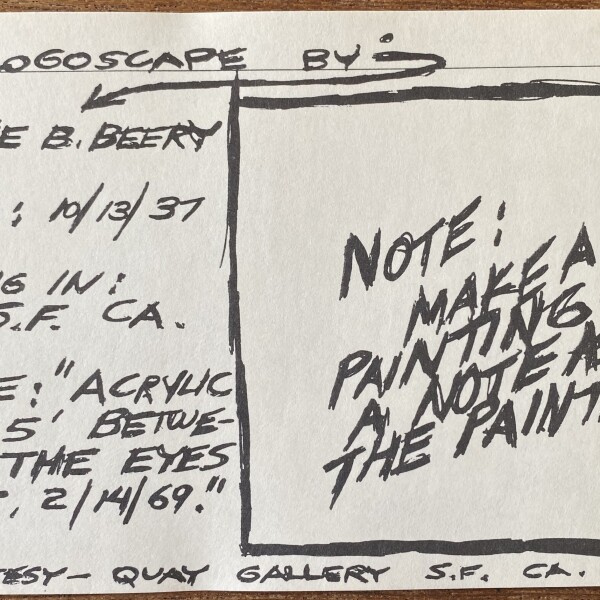 OGOSCAPE BY:
E B. BEERY
: 10/13/37
G IN:
S.F. CA.
E: "ACRYLIC
5' BETWE-
THE EYES
. 2/14/69."
NOTE:
MAKE A
PAINTING
A NOTE A
THE PAINT
ESY- QUAY GALLERY S.F. CA.